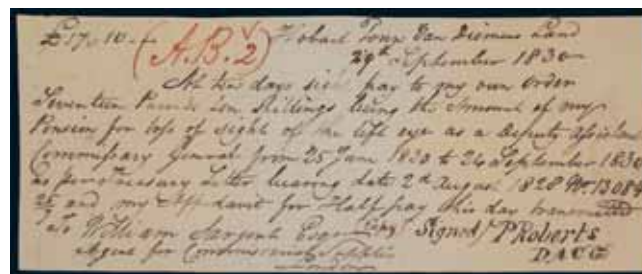 £17.10.- (A.B.2) Hobart Town Van Diemens Land
29th September 1830
At ten days sight pay to my own order
Seventeen Pounds Ten Shillings being the Amount of my
Pension for loss of sight of the left eye as a Deputy Assistant
Commissary General from 25 June 1830 to 24 September 1830
as per Treasury Letter bearing date 2d August 1828 No. 13089
and my Affidavit for Half pay this day transmitted
To William Sargent Esqr Signed/ P Roberts
Agent for Commissariat D.A.C.G
London